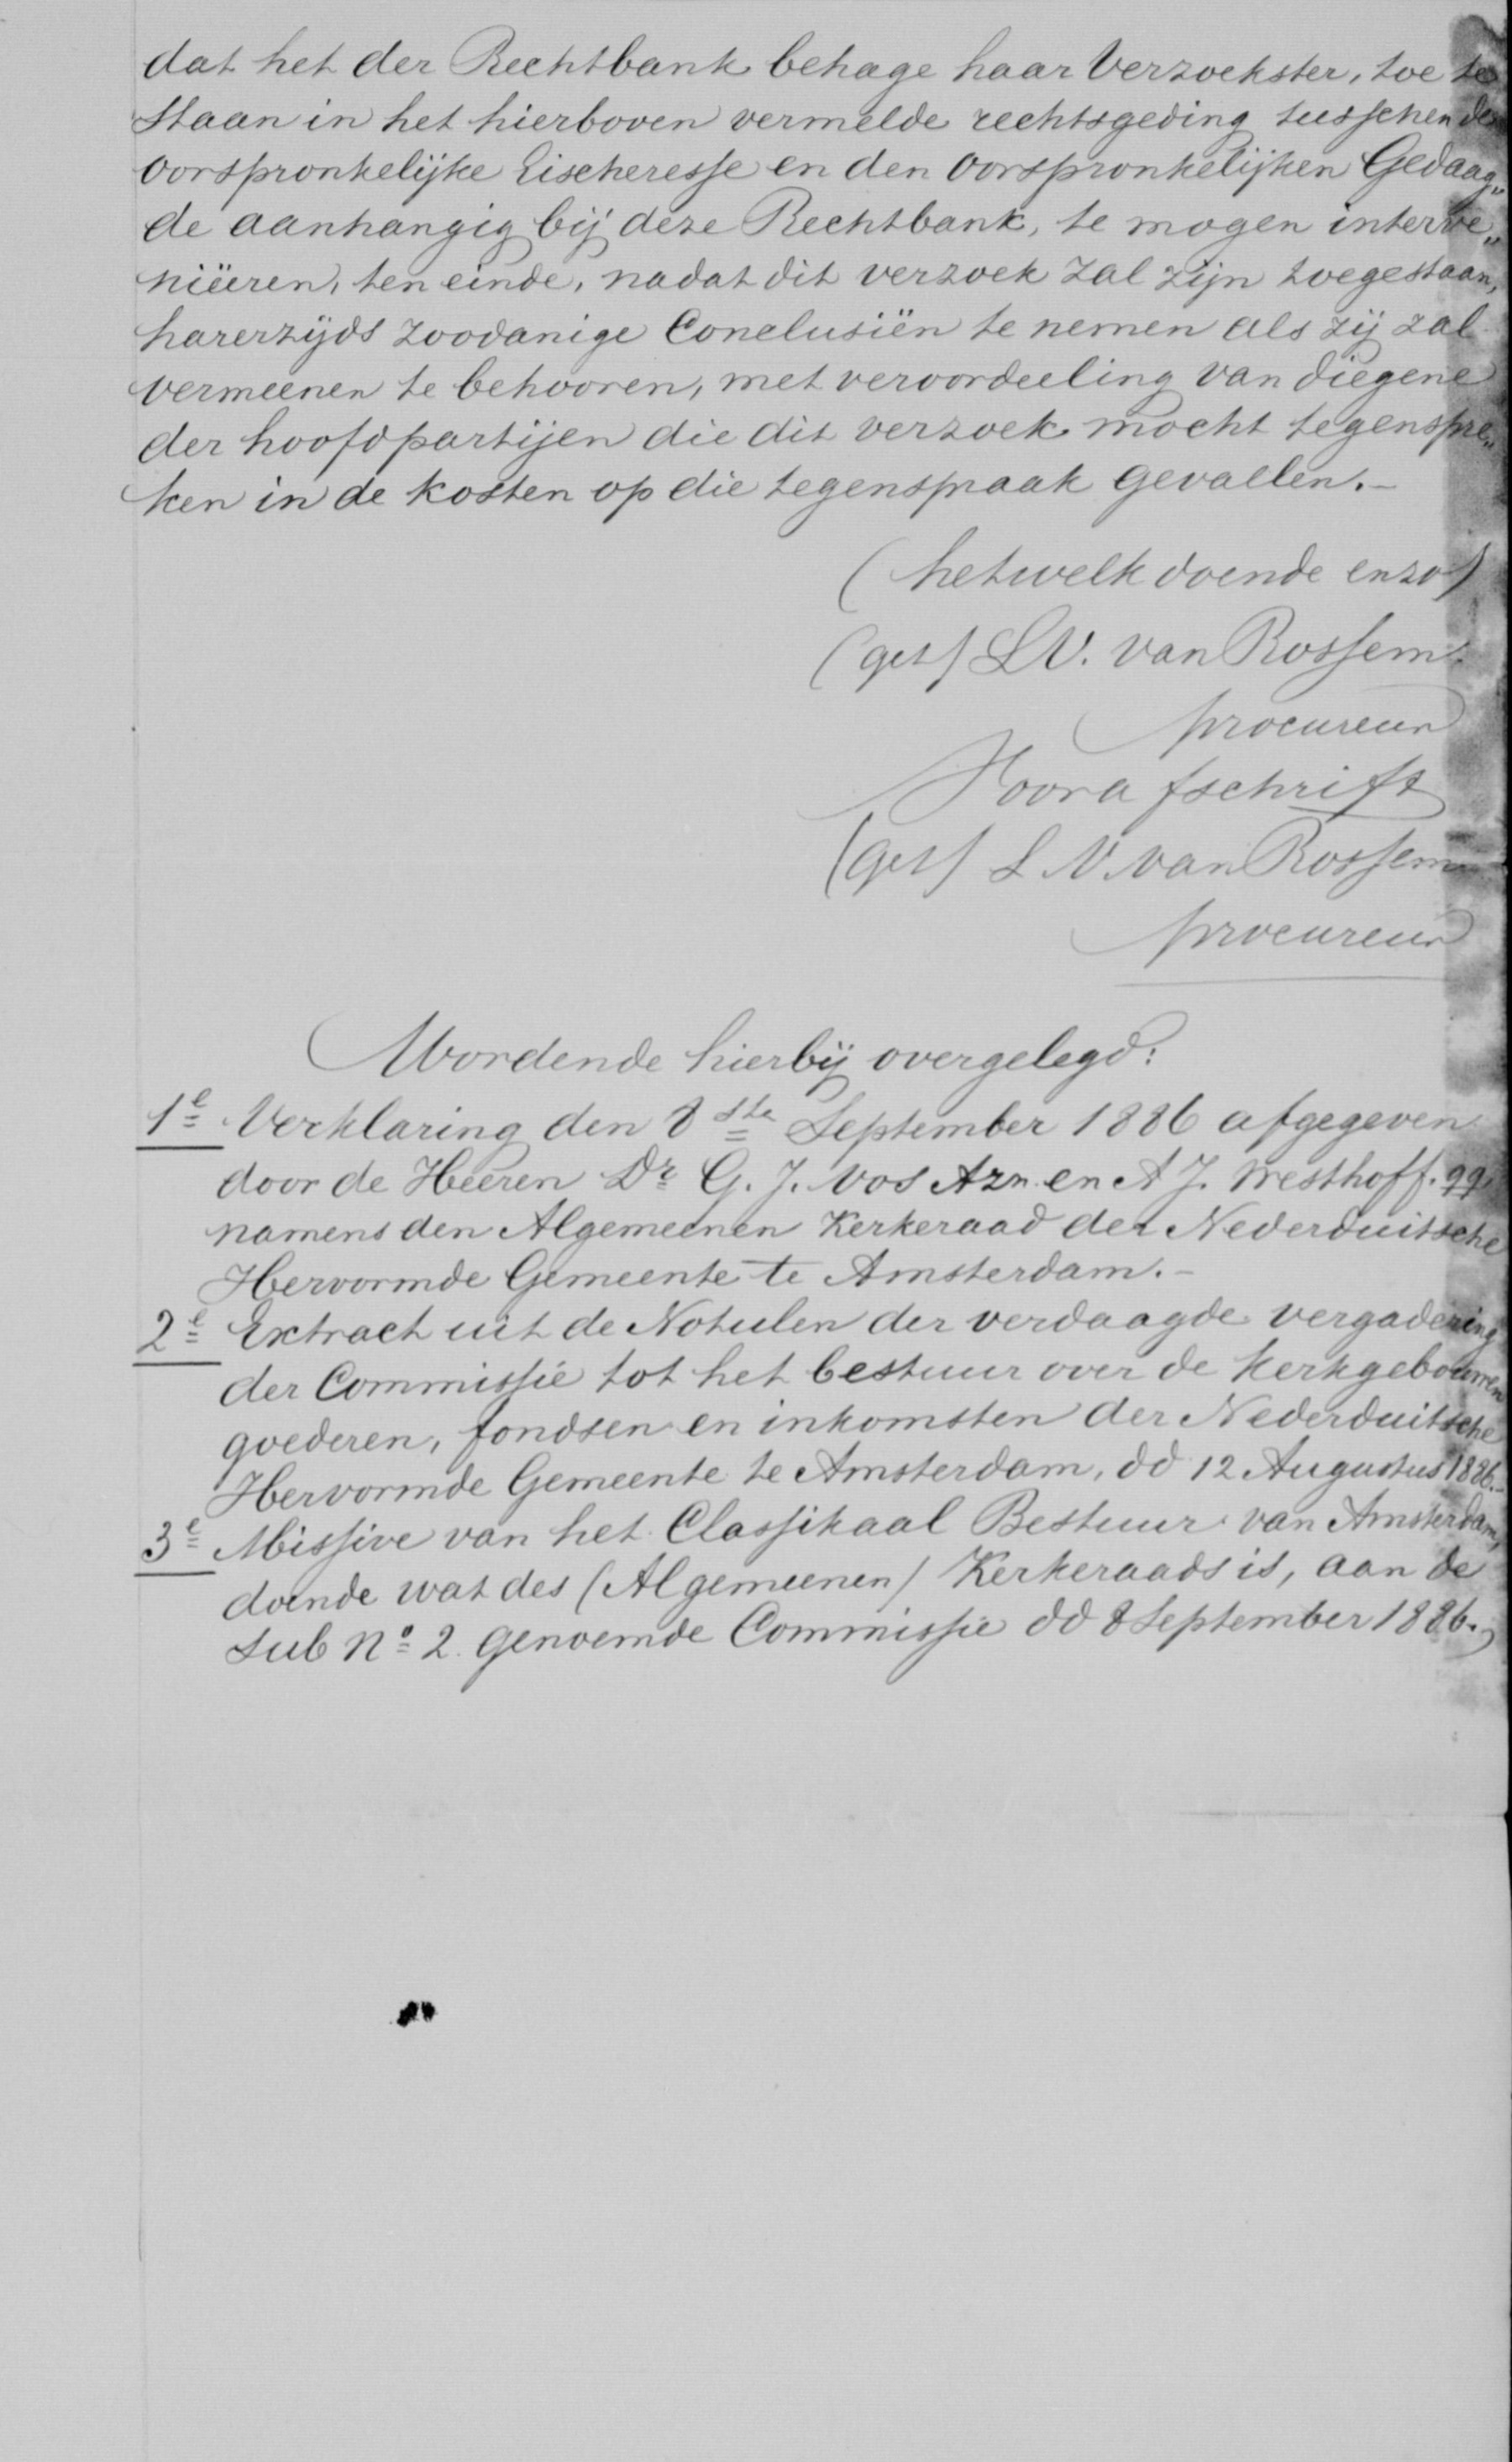 dat het der Rechtbank behage haar Verzoekster, toe te
staan in het hierboven vermelde rechtsgeding tusschen de
oorspronkelijke Eischeresse en den oorspronkelijken Gedaag„
de aanhangig bij deze Rechtbank, te mogen interve„
niëeren, ten einde, nadat dit verzoek zal zijn toegestaan,
harerzijds zoodanige Conclusiën te nemen als zij zal
vermeenen te behooren, met veroordeeling van diegene
der hoofdpartijen die dit verzoek mocht tegenspre„
ken in de kosten op die tegenspraak gevallen.-
(hetwelk doende enzo)
(get) L.V. van Rossem.
procureur
Voor afschrift
(get) L V. van Rossem
procureur
Wordende hierbij overgelegd:
1e Verklaring den 8ste September 1886 afgegeven
door de Heeren Dr G. J. Vos Azn. en A J. Westhoff. qq.
namens den Algemeenen Kerkeraad der Nederduitsche
Hervormde Gemeente te Amsterdam.-
2e Extract uit de Notulen der verdaagde vergadering
der Commissie tot het bestuur over de kerkgebouwen
goederen, fondsen en inkomsten der Nederduitsche
Hervormde Gemeente te Amsterdam, dd 12 Augustus 1886.-
3e Missive van het Classikaal Bestuur van Amsterdam,
doende wat des (Algemeenen) Kerkeraads is, aan de
sub No 2. genoemde Commissie dd 8 September 1886.